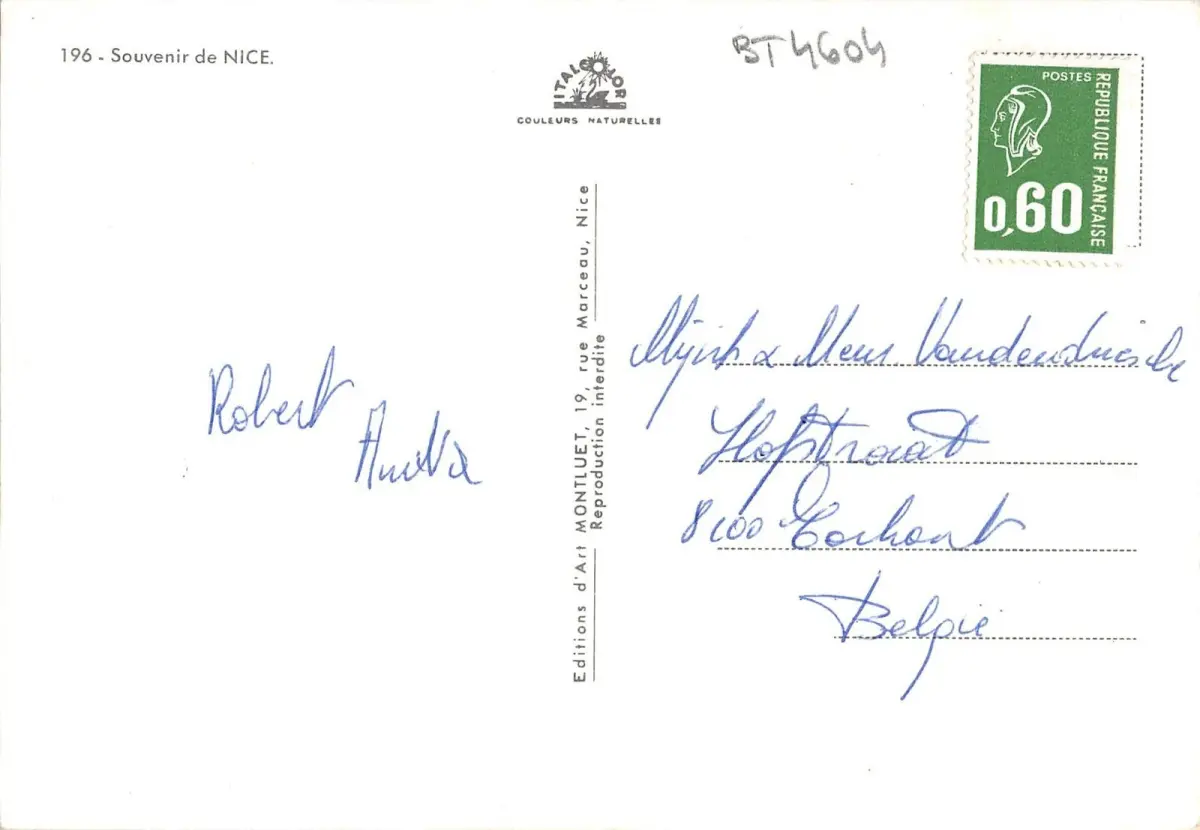 196 - Souvenir de NICE.
BT4604
ITALCOLOR
COULEURS NATURELLES
POSTES
REPUBLIQUE FRANÇAISE
0,60
Editions d'Art MONTLUET, 19, rue Marceau, Nice
Reproduction interdite
Robert
Anita
& Mevr Vandendriesche
Hofstraat
België